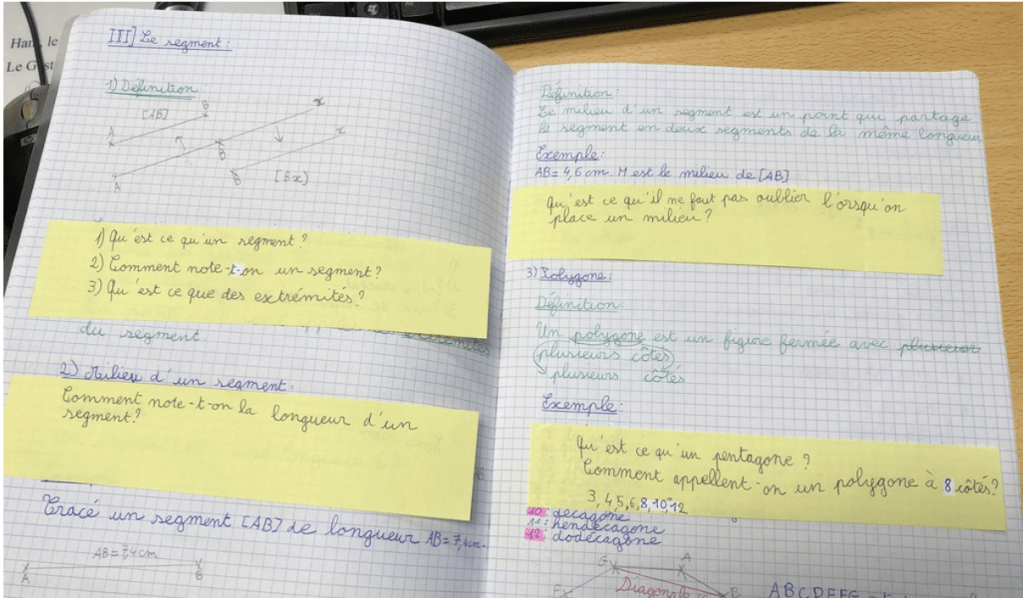 III] Le segment:
1) Définition
[AB]
A
B
x
A
B
x
B
[Bx)
1) Qu'est ce qu'un segment?
2) Comment note-t-on un segment?
3) Qu'est ce que des extrémités?
du segment.
2) Milieu d'un segment:
Comment note-t-on la longueur d'un
segment?
Tracé un segment [AB] de longueur AB=7,4cm.
AB=7,4cm
A
B
Définition:
Le milieu d'un segment est un point qui partage
le segment en deux segments de la même longueur
Exemple:
AB=4,6cm. M est le milieu de [AB]
Qu'est ce qu'il ne faut pas oublier l'orsqu'on
place un milieu?
3) Polygone:
Définition:
Un polygone est un figure fermée avec plusieurs
plusieurs côtés
plusieurs côtés
Exemple:
Qu'est ce qu'un pentagone?
Comment appellent-on un polygone à 8 côtés?
3, 4, 5, 6, 8, 10, 12
10: décagone
11: hendécagone
12: dodécagone
G
A
Diagonale
B
F